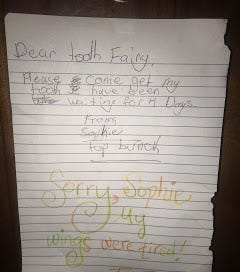 Dear tooth Fairy,
Please come get my
tooth I have been
waiting for 4 Days.
From
Sophie
Top bunck
Sorry, Sophie
My
wings were tired!